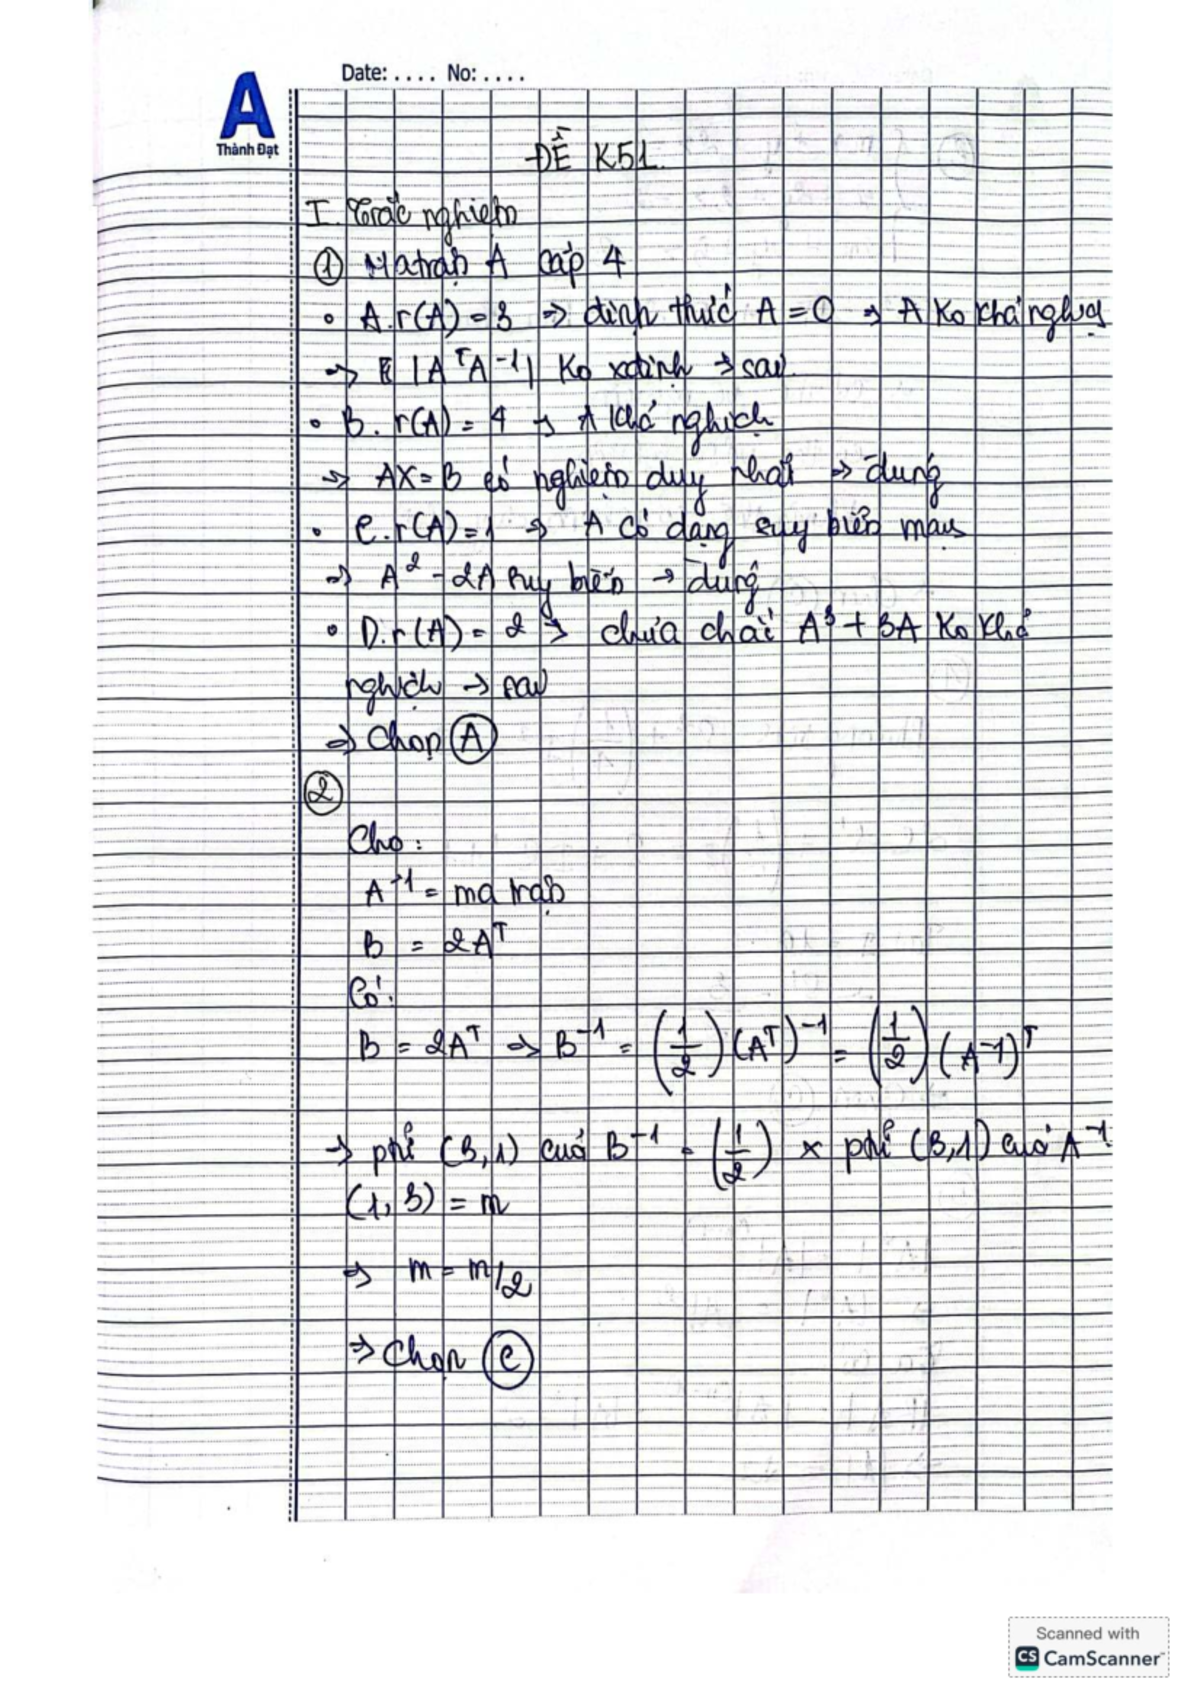 Date: .... No: ....
A
Thành Đạt
ĐỀ K51
I. Trắc nghiệm
① Ma trận A cấp 4
• A. r(A) = 3 => định thức A = 0 => A ko khả nghịch
=> |AᵀA⁻¹| ko xđịnh → sai
• B. r(A) = 4 → A khả nghịch
=> AX = B có nghiệm duy nhất => đúng
• C. r(A) = 1 => A có dạng suy biến mạnh
=> A² - 2A suy biến → đúng
• D. r(A) = 2 => chưa chắc A³ + 3A ko khả
nghịch → sai
=> Chọn Ⓐ
②
Cho:
A⁻¹ = ma trận
B = 2Aᵀ
Có:
B = 2Aᵀ => B⁻¹ = (1/2)(Aᵀ)⁻¹ = (1/2)(A⁻¹)ᵀ
→ ptử (3,1) của B⁻¹ = (1/2) × ptử (3,1) của A⁻¹
(1,3) = m
=> m = m/2
=> Chọn Ⓒ
Scanned with
CS CamScanner